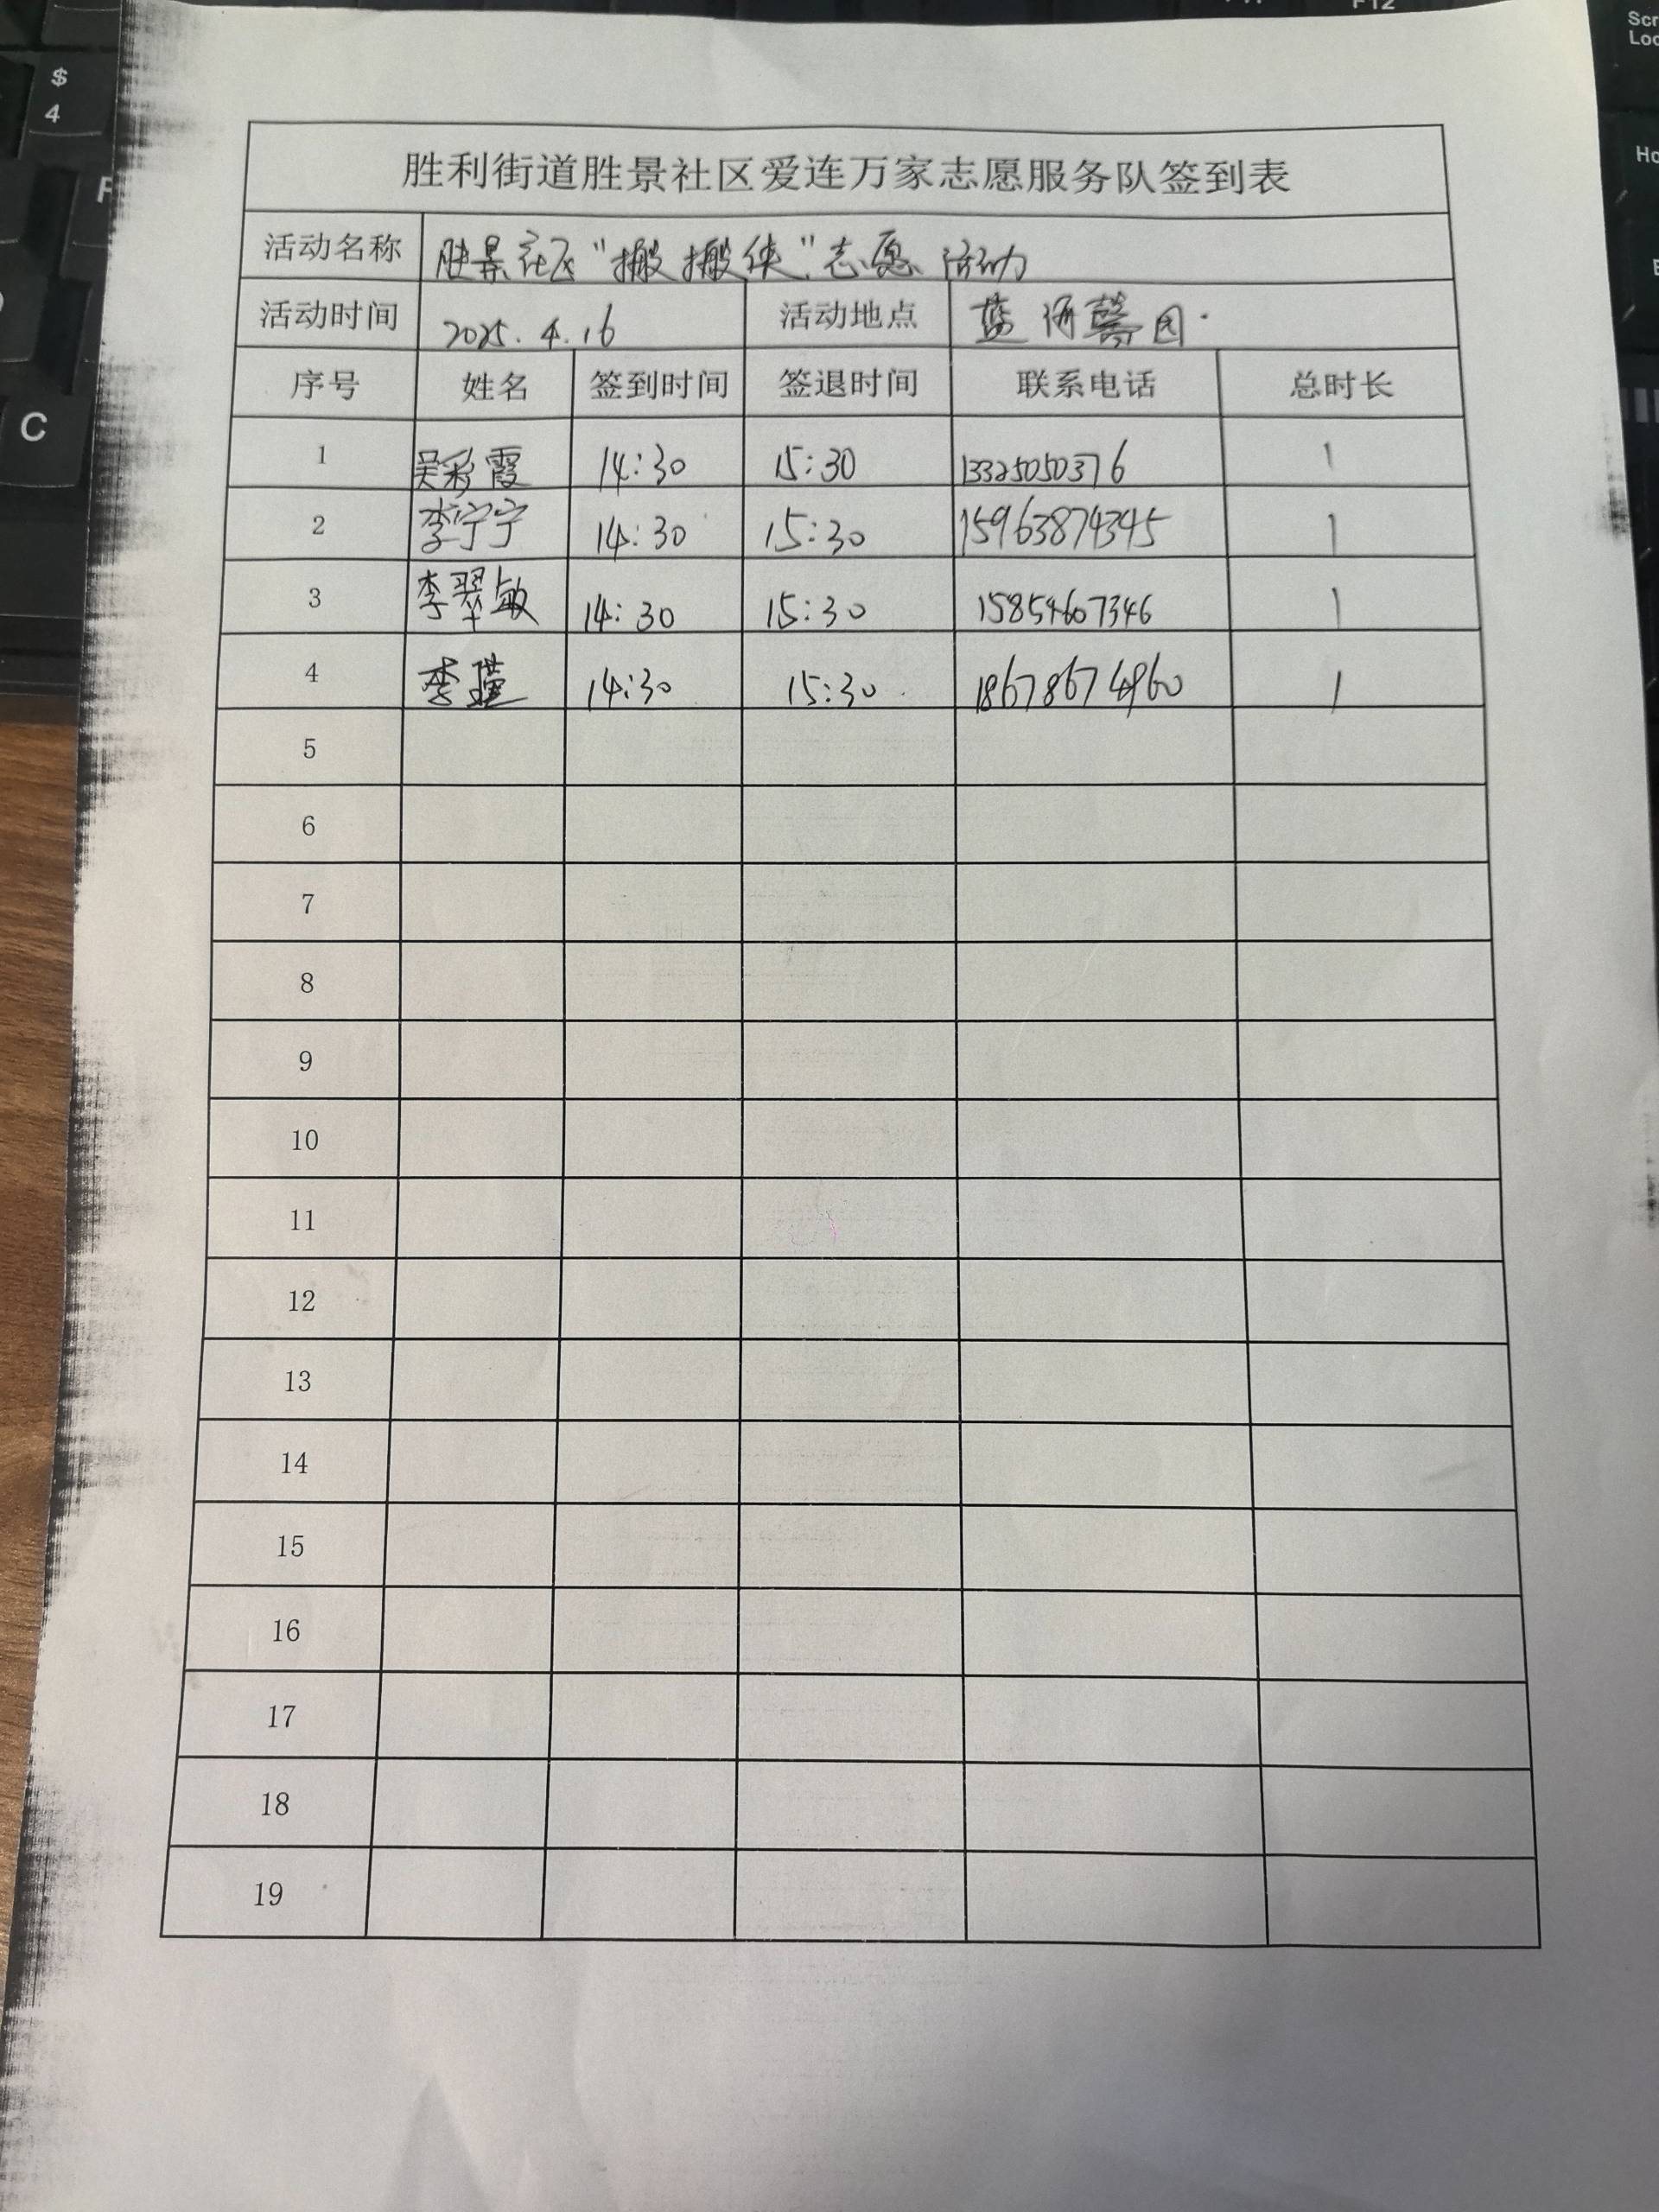 胜利街道胜景社区爱连万家志愿服务队签到表
活动名称 胜景社区“搬搬侠”志愿活动
活动时间 2025.4.16 活动地点 蓝海馨园
序号 姓名 签到时间 签退时间 联系电话 总时长
1 吴彩霞 14:30 15:30 13325050376 1
2 李宁宁 14:30 15:30 15963874345 1
3 李翠敏 14:30 15:30 15854607346 1
4 李瑾 14:30 15:30 1
5
6
7
8
9
10
11
12
13
14
15
16
17
18
19
$
4
C
F12